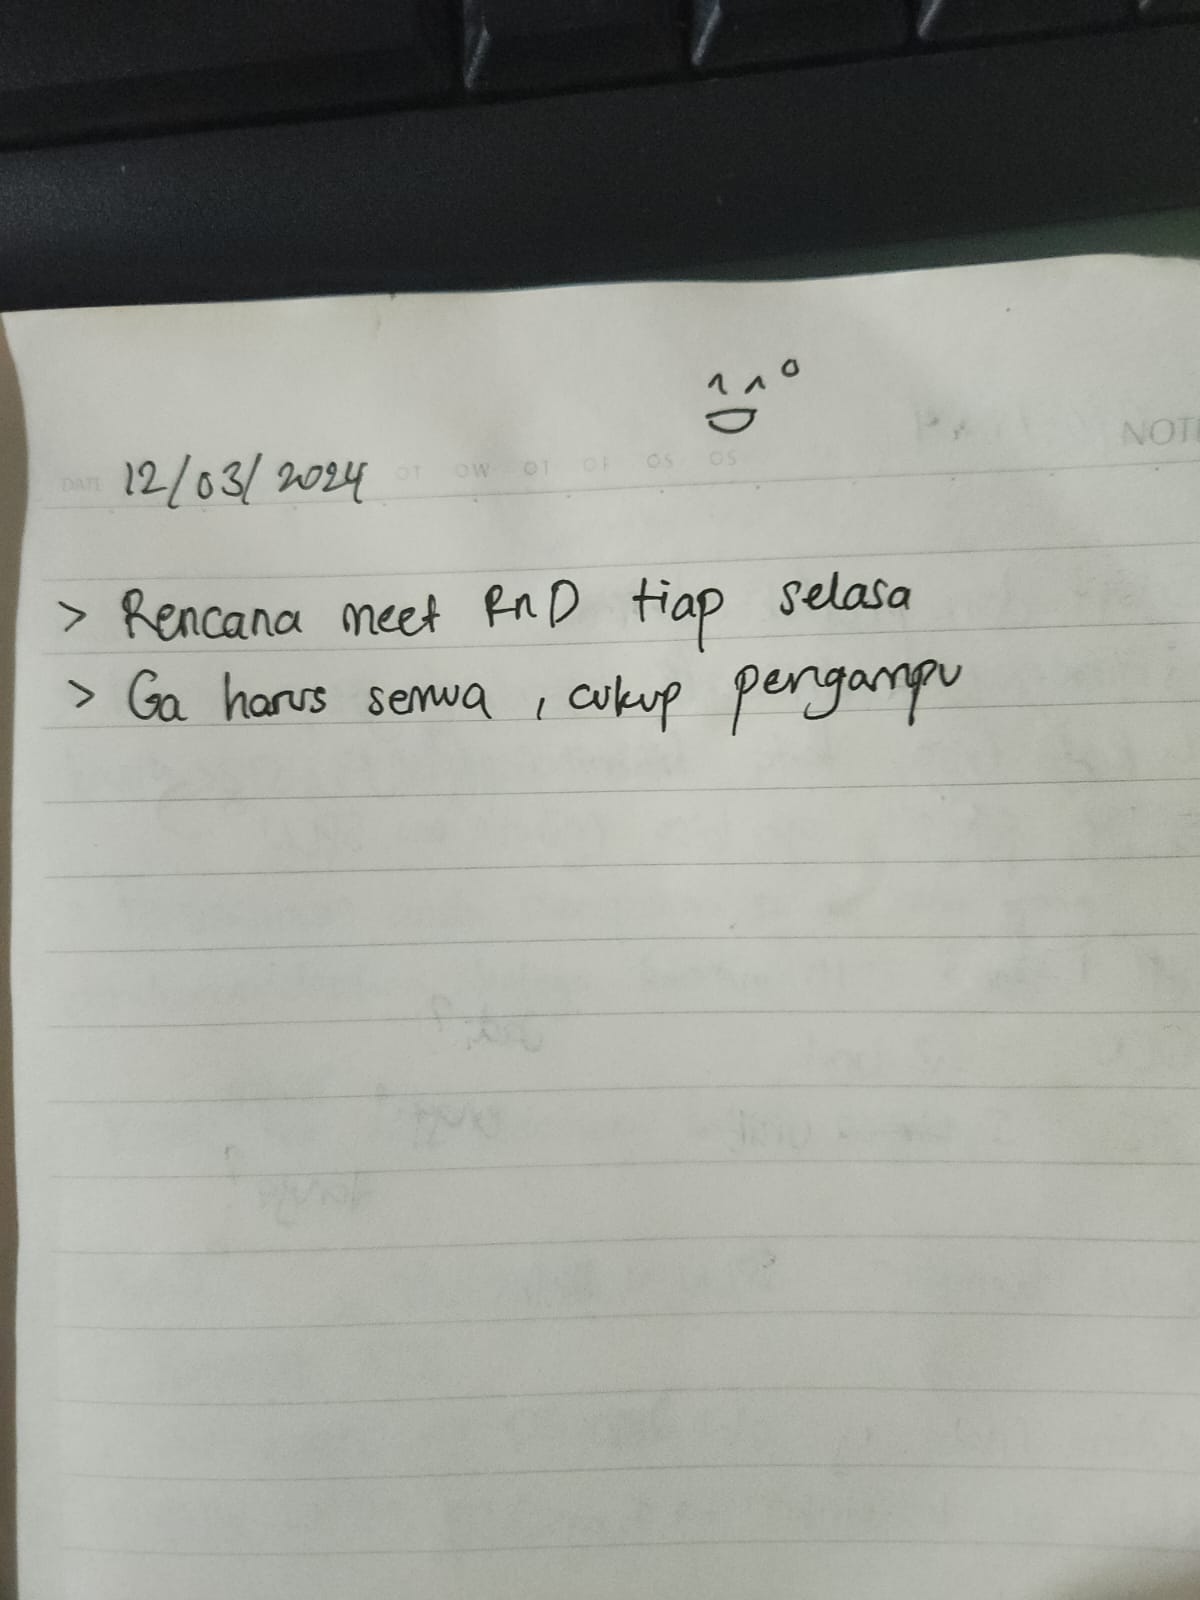 NOTE
DATE 12/03/2024
> Rencana meet RnD tiap selasa
> Ga harus semua, cukup pengampu